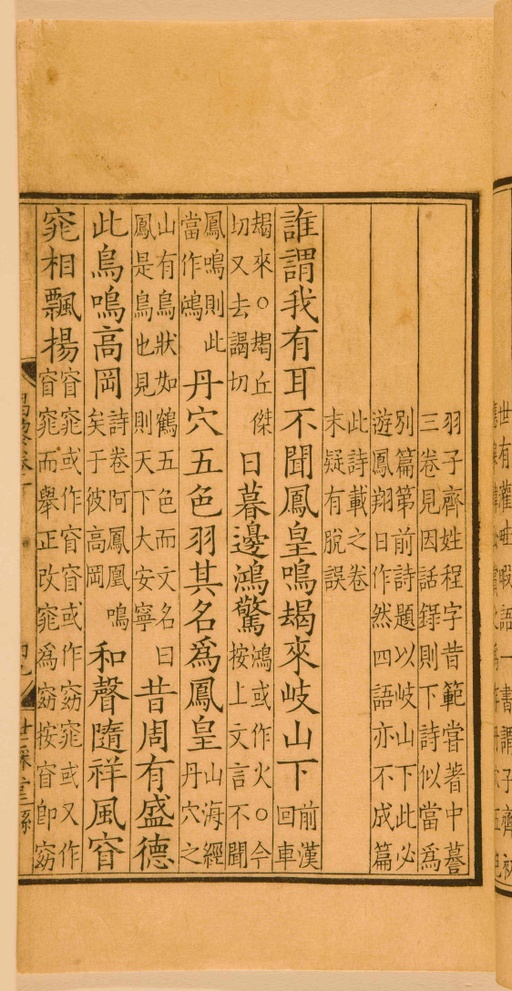 羽子齊姓程字昔範嘗著中謩
三卷見因話録則下詩似當爲
別篇第前詩題以岐山下此必
遊鳳翔日作然四語亦不成篇
此詩載之卷
末疑有脫誤
誰謂我有耳不聞鳳皇鳴朅來岐山下
前漢
回車
朅來○朅丘傑
切又去謁切
日暮邊鴻驚
鴻或作火○今
按上文言不聞
鳳鳴則此
當作鴻
丹穴五色羽其名爲鳳皇
山海經
丹穴之
山有鳥狀如鶴五色而文名曰
鳳是鳥也見則天下大安寧
昔周有盛德
此鳥鳴高岡
詩卷阿鳳凰鳴
矣于彼高岡
和聲隨祥風窅
窕相飄揚
窅窕或作窅窅或作窈窕或又作
窅窕而舉正改窕爲窈按窅卽窈